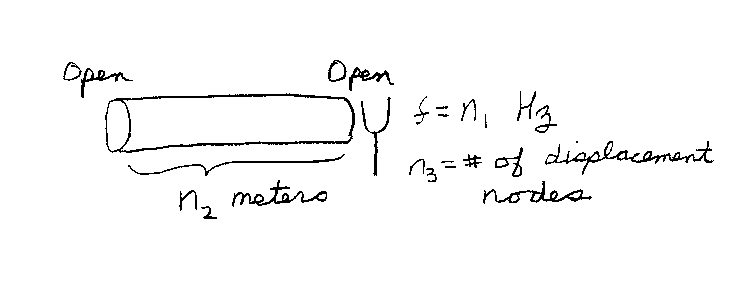 Open Open
f = n₁ Hz
n₃ = # of displacement
nodes
n₂ meters